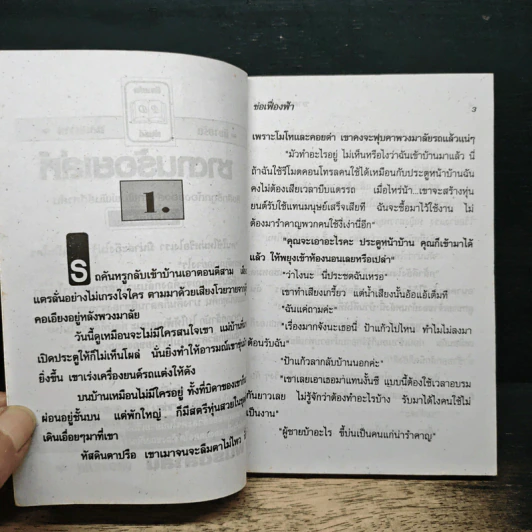 1.
รถคันหรูกลับเข้าบ้านเอาตอนตีสาม
แตรลั่นอย่างไม่เกรงใจใคร ตามมาด้วยเสียงโวยวายจาก
คอเอียงอยู่หลังพวงมาลัย
วันนี้ดูเหมือนจะไม่มีใครสนใจเขา แม้บ้าน
เปิดประตูให้ก็ไม่เห็นโผล่ นั่นยิ่งทำให้อารมณ์เขา
ยิ่งขึ้น เขาเร่งเครื่องยนต์รถแต่งให้ดัง
บนบ้านเหมือนไม่มีใครอยู่ ทั้งที่บิดาของเขา
ผ่อนอยู่ชั้นบน แต่พักใหญ่ๆ ก็มีสตรีหุ่นสวยในชุด
เดินเอื่อยๆมาที่เขา
หัสดินตาปรือ เขาเมาจนจะลืมตาไม่ไหว
ช่อเฟื่องฟ้า
3
เพราะโมโหและคอยด่า เขาคงจะฟุบคาพวงมาลัยรถแล้วแน่ๆ
"มัวทำอะไรอยู่ ไม่เห็นหรือไงว่าฉันเข้าบ้านมาแล้ว นี่
ถ้าฉันใช้รีโมตคอนโทรลคนใช้ได้เหมือนกับประตูหน้าบ้านฉัน
คงไม่ต้องเสียเวลาบีบแตรรถ เมื่อไหร่น้า...เขาจะสร้างหุ่น
ยนต์รับใช้แทนมนุษย์เสร็จเสียที ฉันจะซื้อมาไว้ใช้งาน ไม่
ต้องมารำคาญพวกคนใช้ขี้เง่านี่อีก"
"คุณจะเอาอะไรคะ ประตูหน้าบ้าน คุณก็เข้ามาได้
แล้ว ให้พยุงเข้าห้องนอนเลยหรือเปล่า"
"ว่าไงนะ นี่ประชดฉันเหรอ"
เขาทำเสียงเกรี้ยว แต่น้ำเสียงนั้นอ้อแอ้เต็มที
"ฉันแค่ถามค่ะ"
"เรื่องมากจังนะเธอนี่ ป้าแก้วไปไหน ทำไมไม่ลงมา
ต้อนรับฉัน"
"ป้าแก้วลากลับบ้านนอกค่ะ"
"เขาเลยเอาเธอมาแทนงั้นซี แบบนี้ต้องใช้เวลาอบรม
กันยาวเลย ไม่รู้จักว่าต้องทำอะไรบ้าง รับมาได้ไงคนใช้ไม่
เป็นงาน"
"ผู้ชายบ้าอะไร ขี้บ่นเป็นคนแก่น่ารำคาญ"